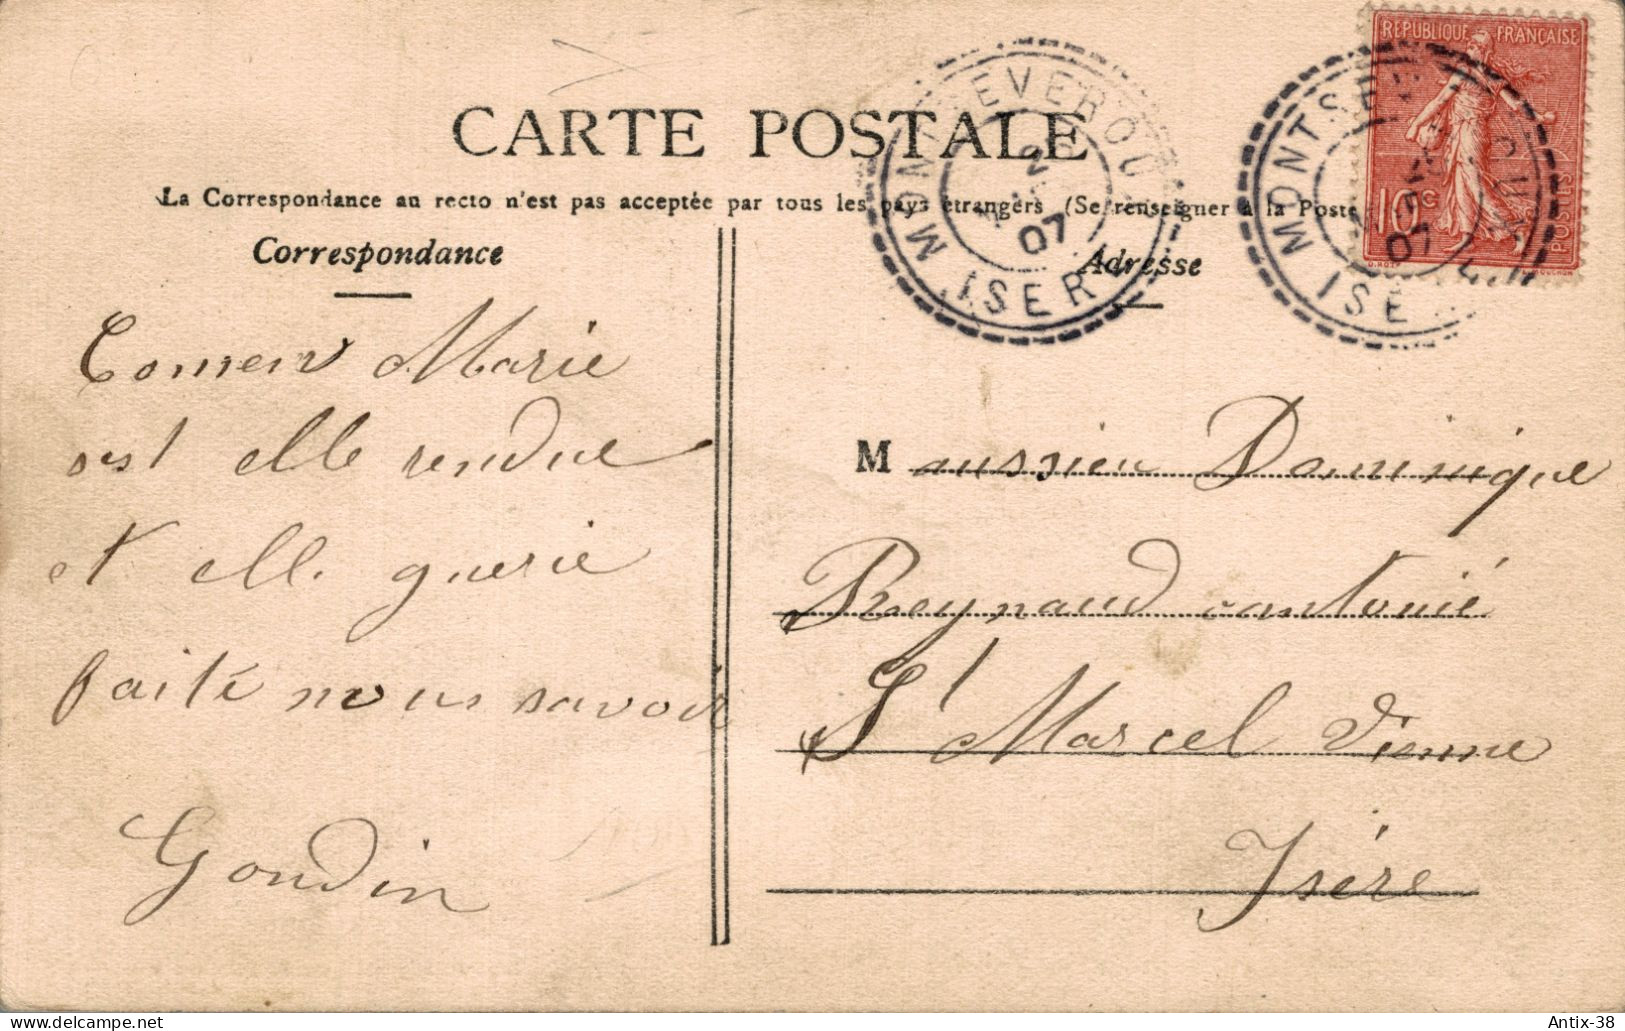 CARTE POSTALE
La Correspondance au recto n'est pas acceptée par tous les pays étrangers (Se renseigner à la Poste
Correspondance
Adresse
REPUBLIQUE FRANÇAISE
10c
POSTES
MONTSEVEROUX
2
07
ISERE
MONTSEVEROUX
07
ISERE
Comenv Marie
est elle rendue
et elle guerie
faite nous savoir
Goudin
Moussieu Dominique
Reynaud cantonié
St Marcel Vienne
Isére
delcampe.net
Antix-38